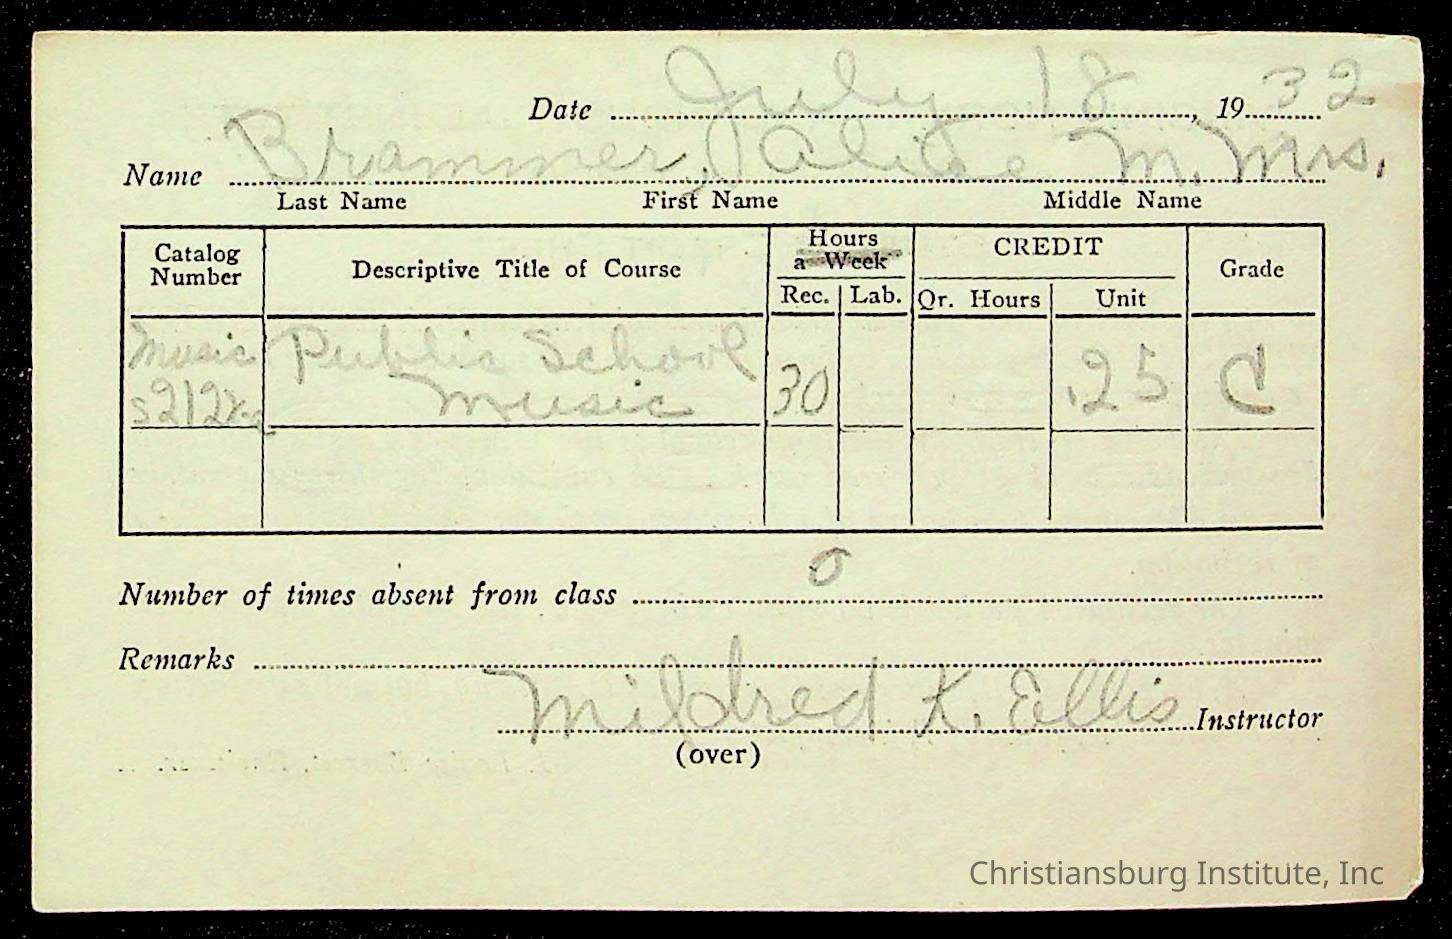 Date July 18, 1932
Name Brammer, Alice M. Mrs.
Last Name First Name Middle Name
Catalog Number Descriptive Title of Course Hours a Week CREDIT Grade
Rec. Lab. Qr. Hours Unit
Music Public School
Music 30 .25 C
Number of times absent from class 0
Remarks
Mildred K. Ellis Instructor
(over)
Christiansburg Institute, Inc